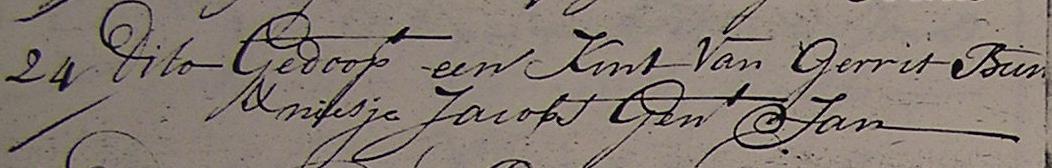 24 Dito Gedoopt een Kint Van Gerrit Bur
& nietje Jacobs Gent Jan